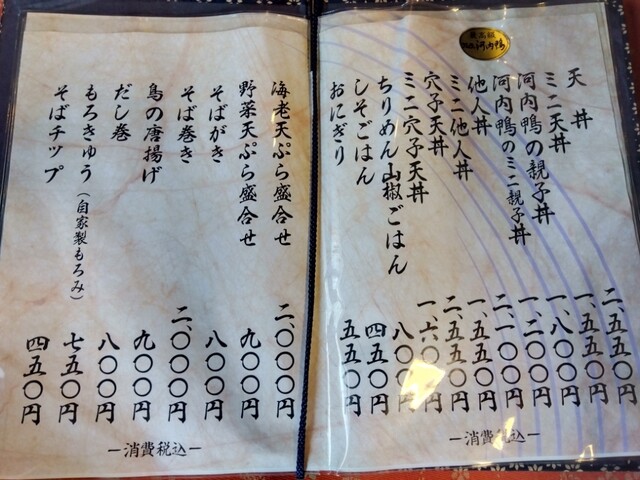 最高級
河内鴨
天丼 二、五五〇円
ミニ天丼 一、五五〇円
河内鴨の親子丼 一、八〇〇円
河内鴨のミニ親子丼 一、二〇〇円
他人丼 二、一〇〇円
ミニ他人丼 一、五五〇円
穴子天丼 二、五五〇円
ミニ穴子天丼 一、六〇〇円
ちりめん山椒ごはん 八〇〇円
しそごはん 四五〇円
おにぎり 五五〇円
―消費税込―
海老天ぷら盛合せ 二、〇〇〇円
野菜天ぷら盛合せ 九〇〇円
そばがき 八〇〇円
そば巻き 二、〇〇〇円
鳥の唐揚げ 九〇〇円
だし巻 八〇〇円
もろきゅう(自家製もろみ) 七五〇円
そばチップ 四五〇円
―消費税込―